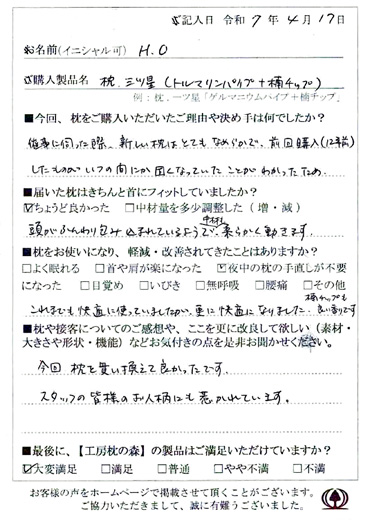 ご記入日 令和 7 年 4 月 17 日
お名前(イニシャル可) H.O
ご購入製品名 枕.三ツ星 (トルマリンパイプ+楠チップ)
例:枕.一ツ星「ゲルマニウムパイプ+楠チップ」
■今回、枕をご購入いただいたご理由や決め手は何でしたか?
に伺った際、新しい枕はとてもなめらかで、前回購入(12年前)
したものがいつの間にか固くなっていたことがわかったため。
■届いた枕はきちんと首にフィットしていましたか?
☑ちょうど良かった □中材量を多少調整した(増・減)
頭がふんわり包み込まれているようで、中材も柔らかく動きます。
■枕をお使いになり、軽減・改善されてきたことはありますか?
□よく眠れる □首や肩が楽になった ☑夜中の枕の手直しが不要
になった □目覚め □いびき □無呼吸 □腰痛 □その他
これまでも快適に使っていましたが、更に快適になりました。楠チップも良い香りです
■枕や接客についてのご感想や、ここを更に改良して欲しい(素材・
大きさや形状・機能)などお気付きの点を是非お聞かせください。
今回 枕を買い換えて良かったです。
スタッフの皆様のお人柄にも惹かれています。
■最後に、【工房枕の森】の製品はご満足いただけていますか?
☑大変満足 □満足 □普通 □やや不満 □不満
お客様の声をホームページで掲載させて頂くことがございます。
ご協力いただきまして、誠に有難うございました。